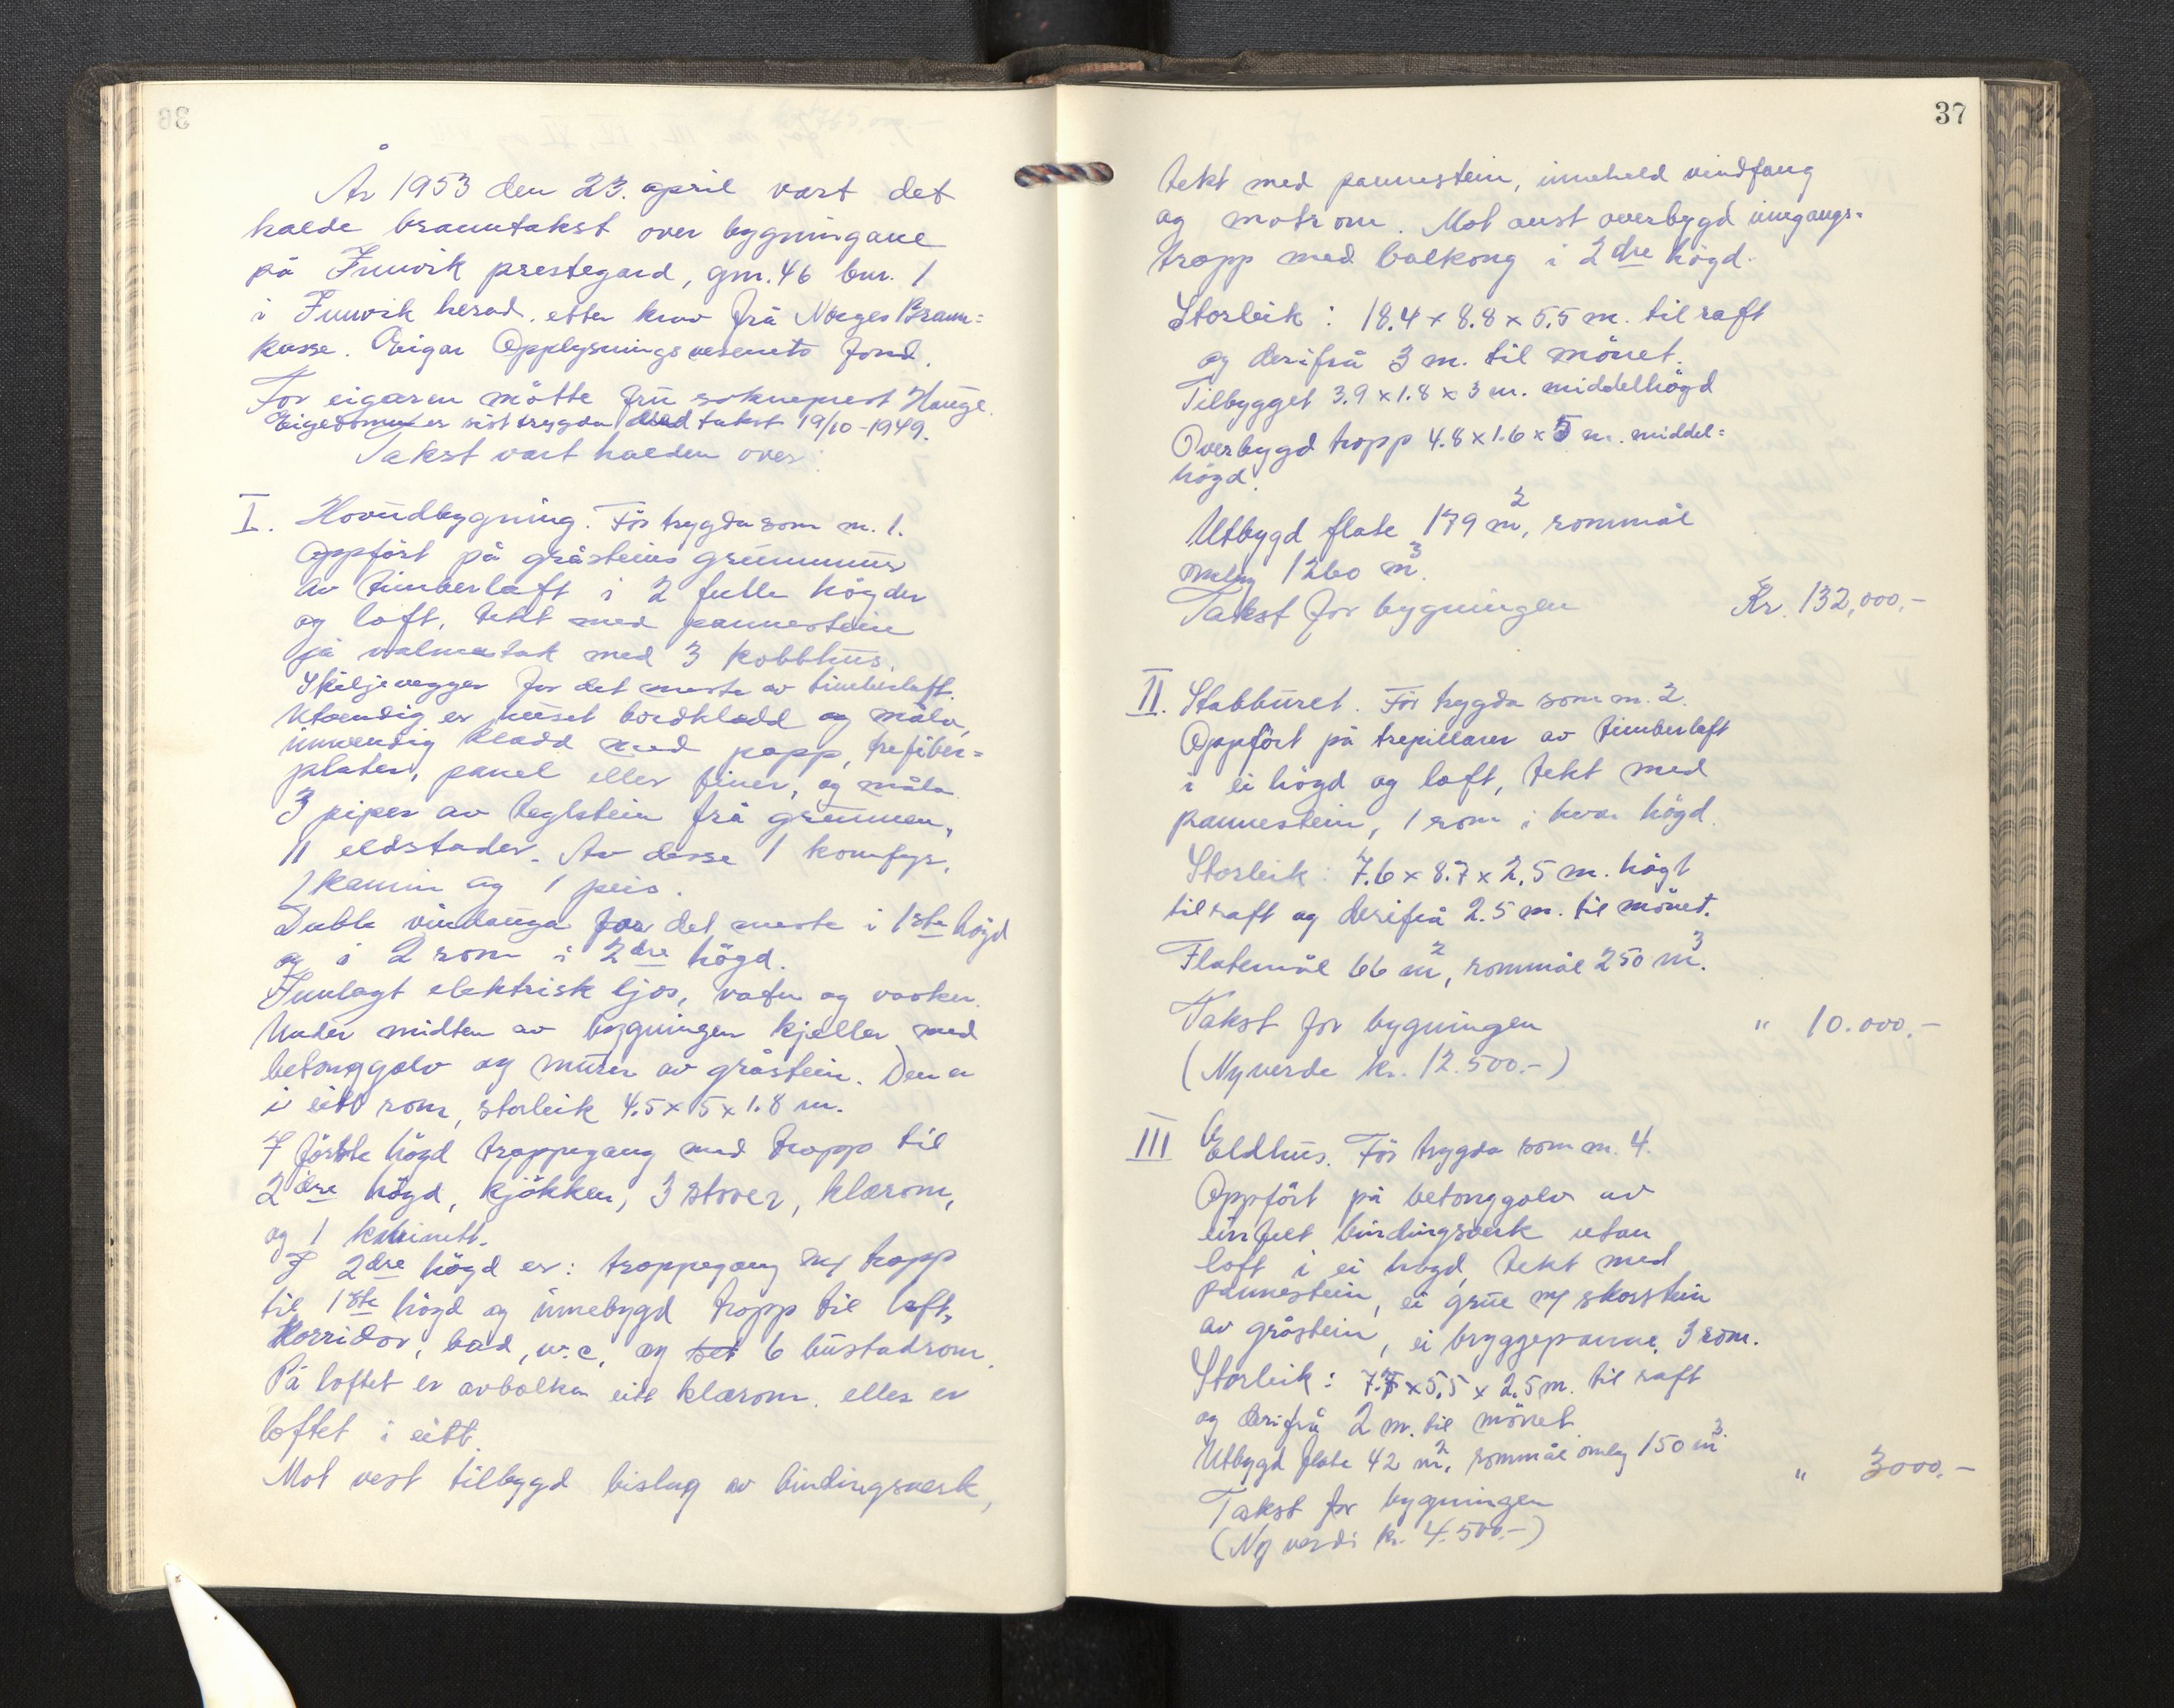 År 1953 den 23. april vart det
halde branntakst over bygningane
på Innvik prestegard, gnr. 46 bnr. 1
i Innvik herad. etter krav frå Norges Brann-
kasse. Eigar Opplysningsvesenets fond.
For eigaren møtte fru sokneprest Hauge.
Eigedomen er sist trygda med takst 19/10-1949.
Takst vart halden over:
I. Hovudbygning. Før trygda som nr. 1.
Oppført på gråsteins grunnmur
av timberlaft i 2 fulle høgder
og loft, tekt med pannestein
på valmatak med 3 kobbhus.
Skiljevegger for det meste av timberlaft.
Utvendig er huset bordkledd og måla,
innvendig kledd med papp, trefiber=
plater, panel eller finer, og måla.
3 piper av teglstein frå grunnen,
11 eldstader. Av desse 1 komfyr,
1 kamin og 1 peis.
Duble vindauga for det meste i 1ste høgd
og i 2 rom i 2dre høgd.
Innlagt elektrisk ljos, vatn og vasker.
Under midten av bygningen kjeller med
betonggolv og murer av gråstein. Den er
i eitt rom, storleik 4.5 x 5 x 1.8 m.
I første høgd troppegang med tropp til
2dre høgd, kjøkken, 3 stover, klærom,
og 1 kabinett.
I 2dre høgd er: troppegang m/ tropp
til 1ste høgd og innebygd tropp til loft,
Korridor, bad, w.c. og 6 bustadrom.
På loftet er avbolka eitt klærom. elles er
loftet i eitt.
Mot vest tilbygd bislag av bindingsverk,
37
tekt med pannestein, inneheld vindfang
og matrom. Mot aust overbygd inngangs=
tropp med balkong i 2dre høgd.
Storleik: 18.4 x 8.8 x 5.5 m. til raft
og derifrå 3 m. til mønet.
Tilbygget 3.9 x 1.8 x 3 m. middelhøgd
Overbygd tropp 4.8 x 1.6 x 5 m. middel=
høgd.
Utbygd flate 179 m², rommål
omlag 1260 m³.
Takst for bygningen Kr. 132,000,-
II. Stabburet. Før trygda som nr. 2.
Oppført på trepillarer av timberlaft
i ei høgd og loft, tekt med
pannestein, 1 rom i kvar høgd.
Storleik: 7.6 x 8.7 x 2.5 m. høgt
til raft og derifrå 2.5 m. til mønet.
Flatemål 66 m², rommål 250 m³.
Takst for bygningen " 10.000,-
(Nyverde kr. 12.500.-)
III Eldhus. Før trygda som nr. 4.
Oppført på betonggolv av
einfelt bindingsverk utan
loft i ei høgd, tekt med
pannestein, ei grue m/ skorstein
av gråstein, ei bryggepanne, 3 rom.
Storleik: 7.7 x 5.5 x 2.5 m. til raft
og derifrå 2 m. til mønet.
Utbygd flate 42 m², rommål omlag 150 m³.
Takst for bygningen " 3000.-
(Ny verdi kr. 4.500.-)